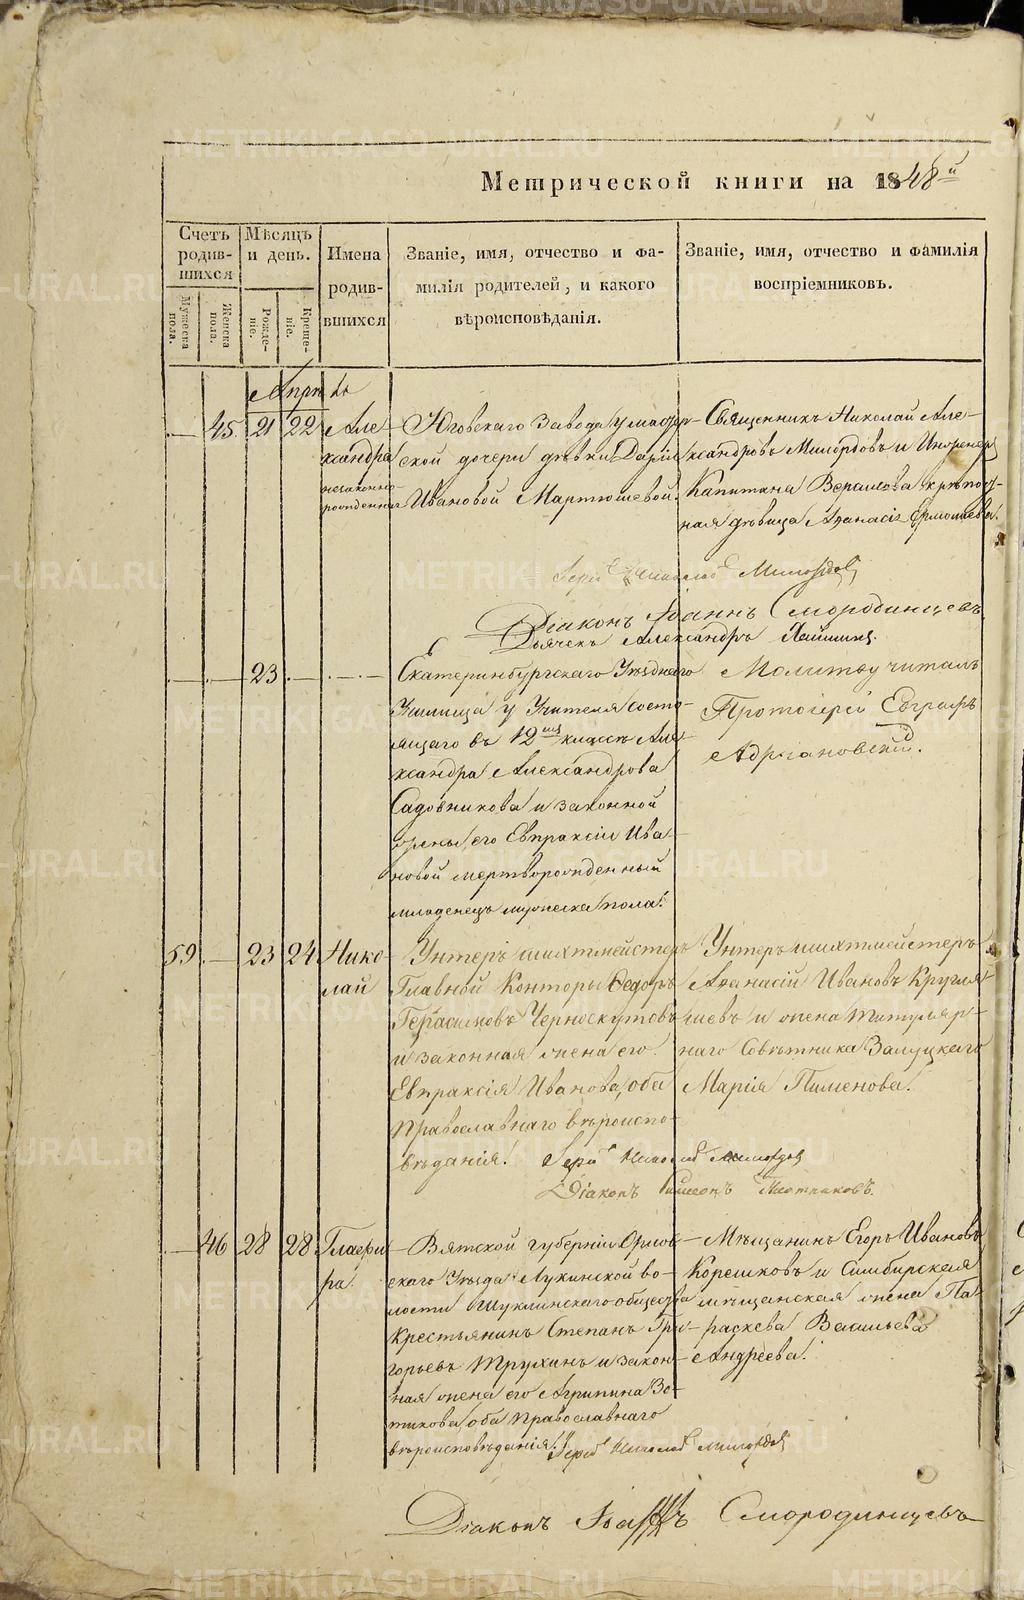 Метрической книги на 1848й
Счетъ родив-шихся
Мѣсяцъ и день.
Имена родив-вшихся
Званіе, имя, отчество и фа-
милія родителей, и какого
вѣроисповѣданія.
Званіе, имя, отчество и фамилія
воспріемниковъ.
Мужеска пола.
Женска пола.
Рожде-ніе.
Креще-ніе.
Апрѣль
45. 21 22 Але-
ксандра
незаконно-
рожденная
Юговскаго Завода у
ской дочери дѣвки Даріи
Ивановой Мартюшевой.
Священникъ Николай Але-
ксандровъ Милордовъ и Инженер
Капитана крѣпост-
ная дѣвица Аѳанасія Ермолаева.
Іерей Николай Милордовъ
Діаконъ Іоаннъ Смородинцевъ
Дьячекъ Александръ
23
Екатеринбургскаго Уѣзднаго
Училища у Учителя состо-
ящаго въ 12мъ классѣ Але-
ксандра Александрова
Садовникова и законной
жены его Евпраксіи Ива-
новой мертворожденный
младенецъ мужеска пола.
Молитву читалъ
Протоіерей Евграфъ
59. 23 24 Нико-
лай
Унтеръ шихтмейстеръ
Главной Конторы Ѳедоръ
Герасимовъ Черноскутовъ
и законная жена его
Евпраксія Иванова, оба
Православнаго вѣроиспо-
вѣданія.
Унтеръ шихтмейстеръ
Аѳанасій Ивановъ Кругля-
шевъ и жена Титуляр-
наго Совѣтника Залуцкаго
Марія Пименова.
Іерей Николай Милордовъ
Діаконъ Симеонъ Плотниковъ.
46 28 28 Глафи-
ра.
Вятской губерніи Орлов-
скаго Уѣзда Лукинской во-
лости Шуклинскаго общества
Крестьянинъ Степанъ Гри-
горьевъ Трухинъ и закон-
ная жена его Агрипина Зо-
тикова, оба Православнаго
вѣроисповѣданія.
Мѣщанинъ Егоръ Ивановъ
Корешковъ и Симбирская
мѣщанская жена Па-
раскева Васильева
Андреева.
Іерей Николай Милордовъ
Діаконъ Іоаннъ Смородинцевъ
METRIKI.GASO-URAL.RU